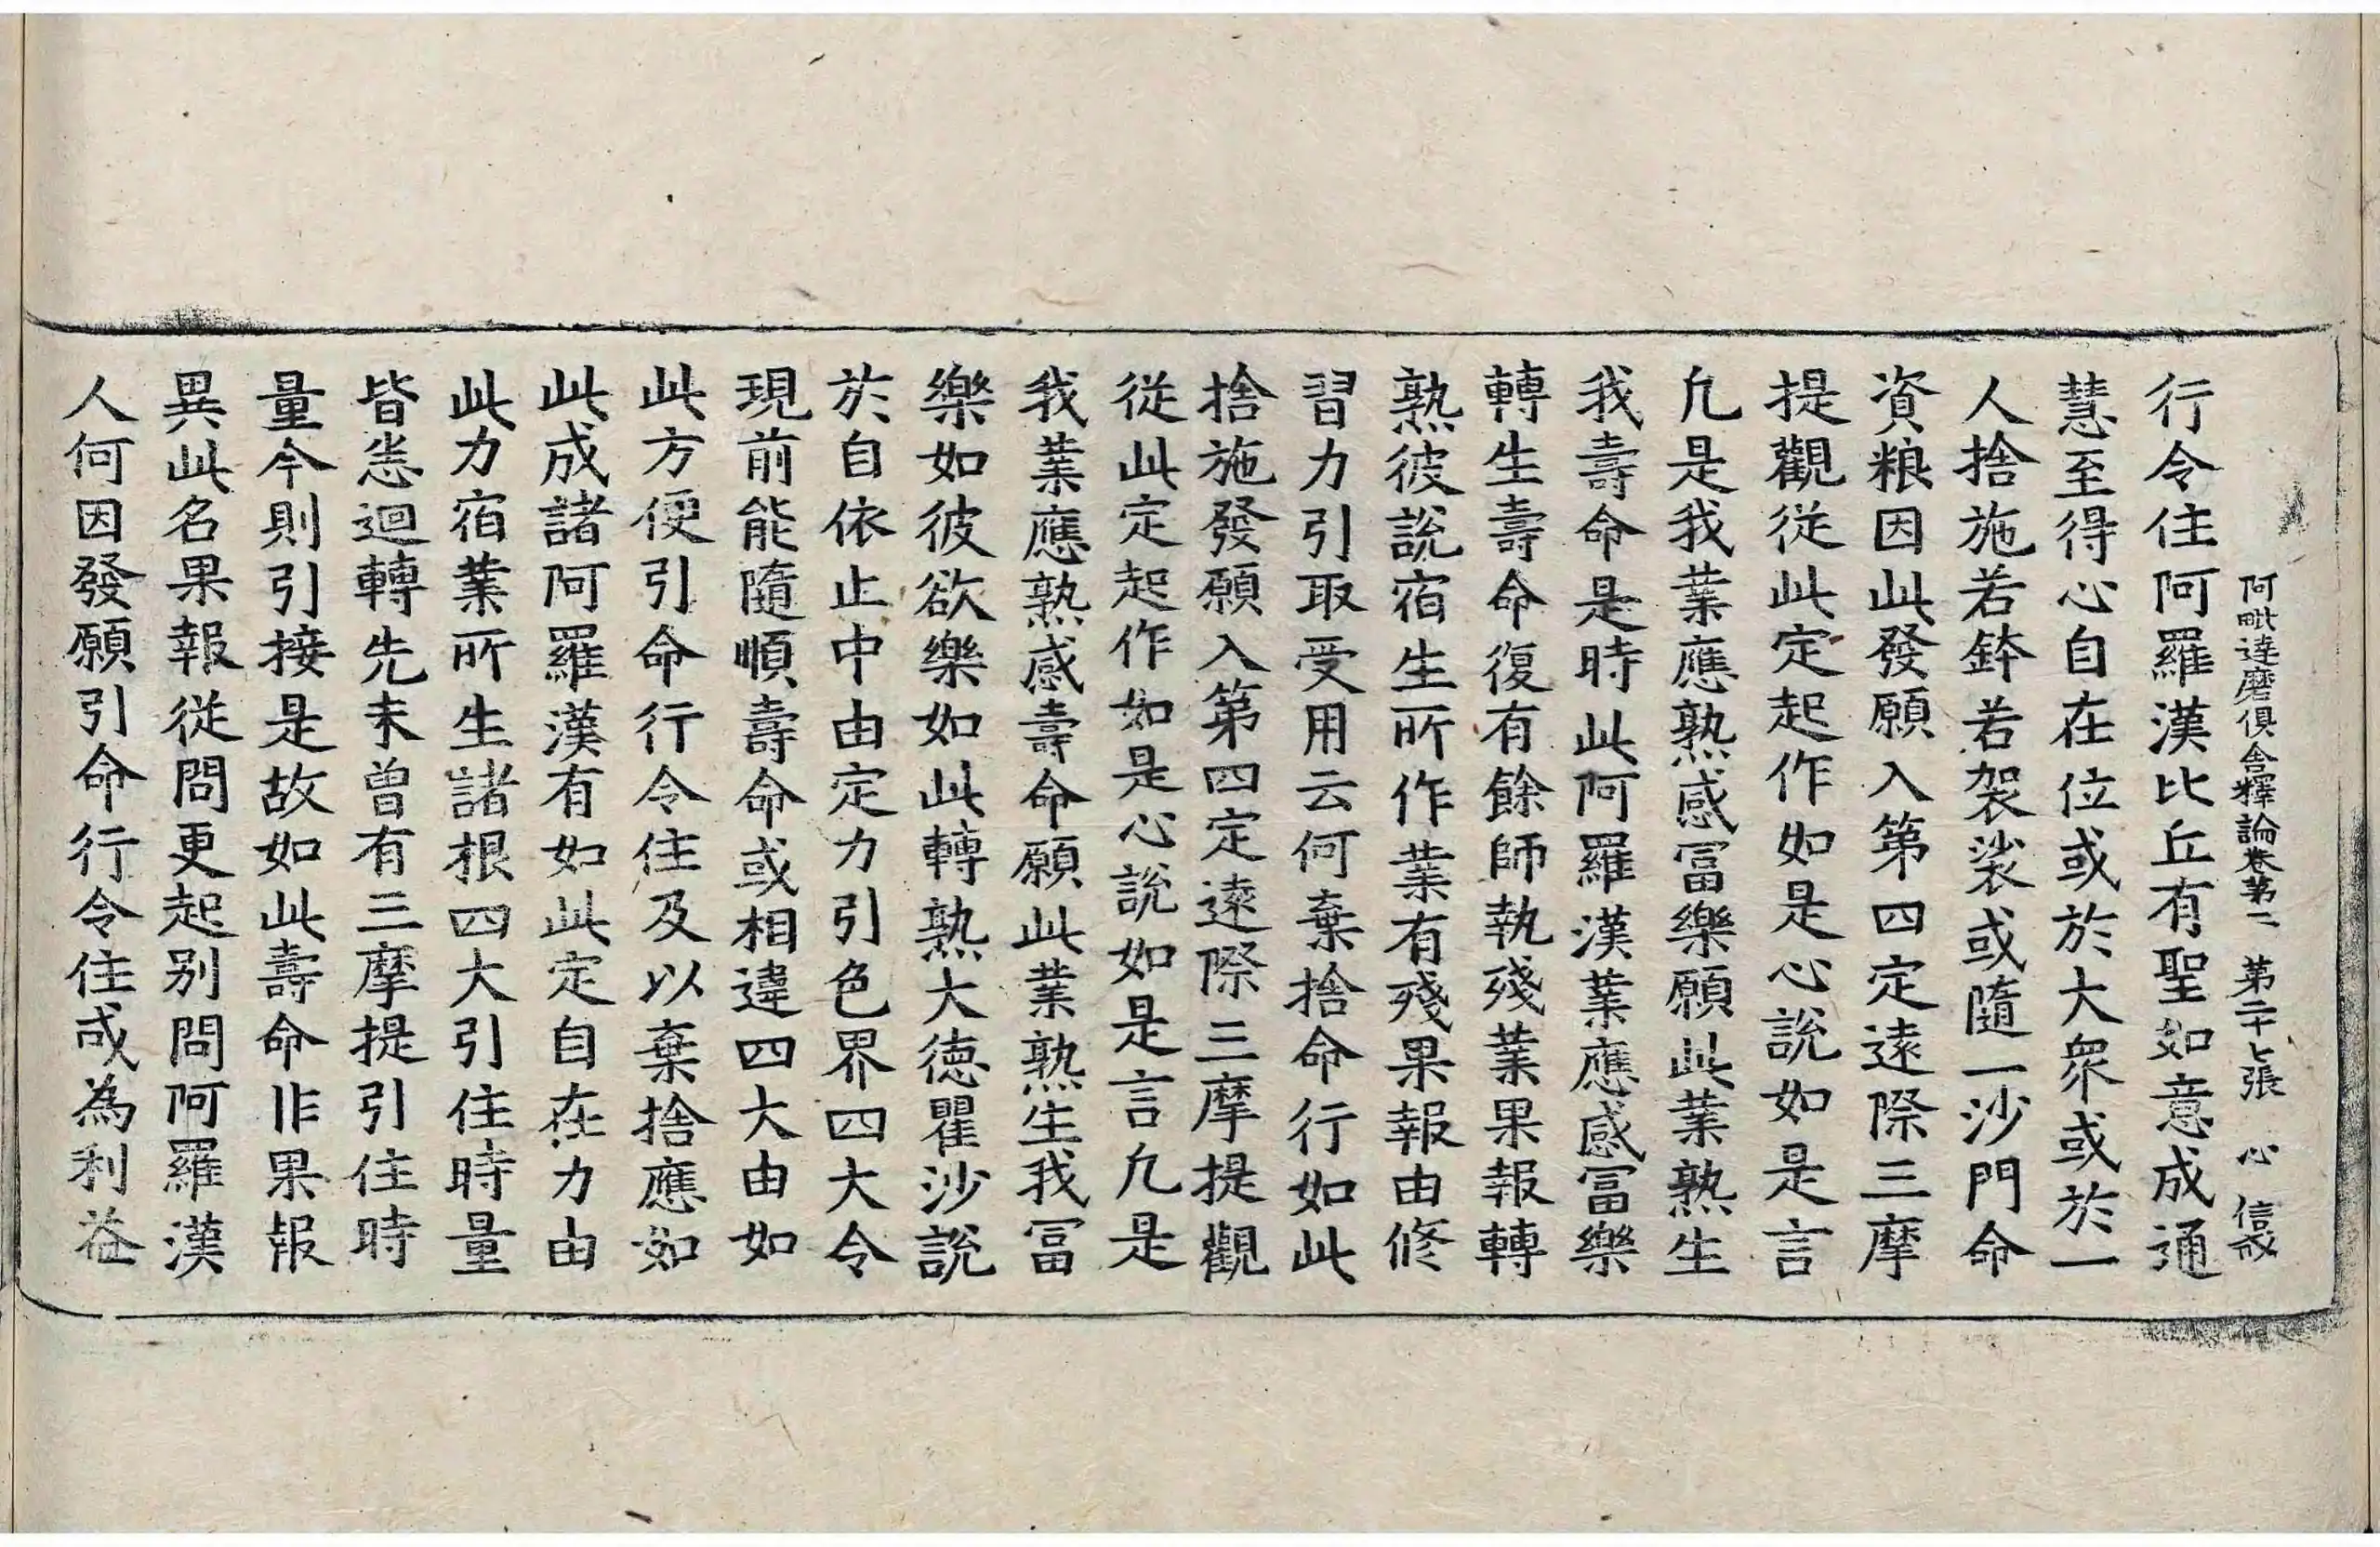 阿毗達磨俱舍釋論卷第二　第二十七張　心　信成
行令住阿羅漢比丘有聖如意成通
慧至得心自在位或於大衆或於一
人捨施若鉢若袈裟或隨一沙門命
資粮因此發願入第四定遠際三摩
提觀從此定起作如是心說如是言
凢是我業應熟感冨樂願此業熟生
我壽命是時此阿羅漢業應感冨樂
轉生壽命復有餘師執殘業果報轉
熟彼說宿生所作業有殘果報由修
習力引取受用云何棄捨命行如此
捨施發願入第四定遠際三摩提觀
從此定起作如是心說如是言凢是
我業應熟感壽命願此業熟生我冨
樂如彼欲樂如此轉熟大德瞿沙說
於自依止中由定力引色界四大令
現前能隨順壽命或相違四大由如
此方便引命行令住及以棄捨應如
此成諸阿羅漢有如此定自在力由
此力宿業所生諸根四大引住時量
皆悉迴轉先未曾有三摩提引住時
量今則引接是故如此壽命非果報
異此名果報從問更起別問阿羅漢
人何因發願引命行令住或為利益